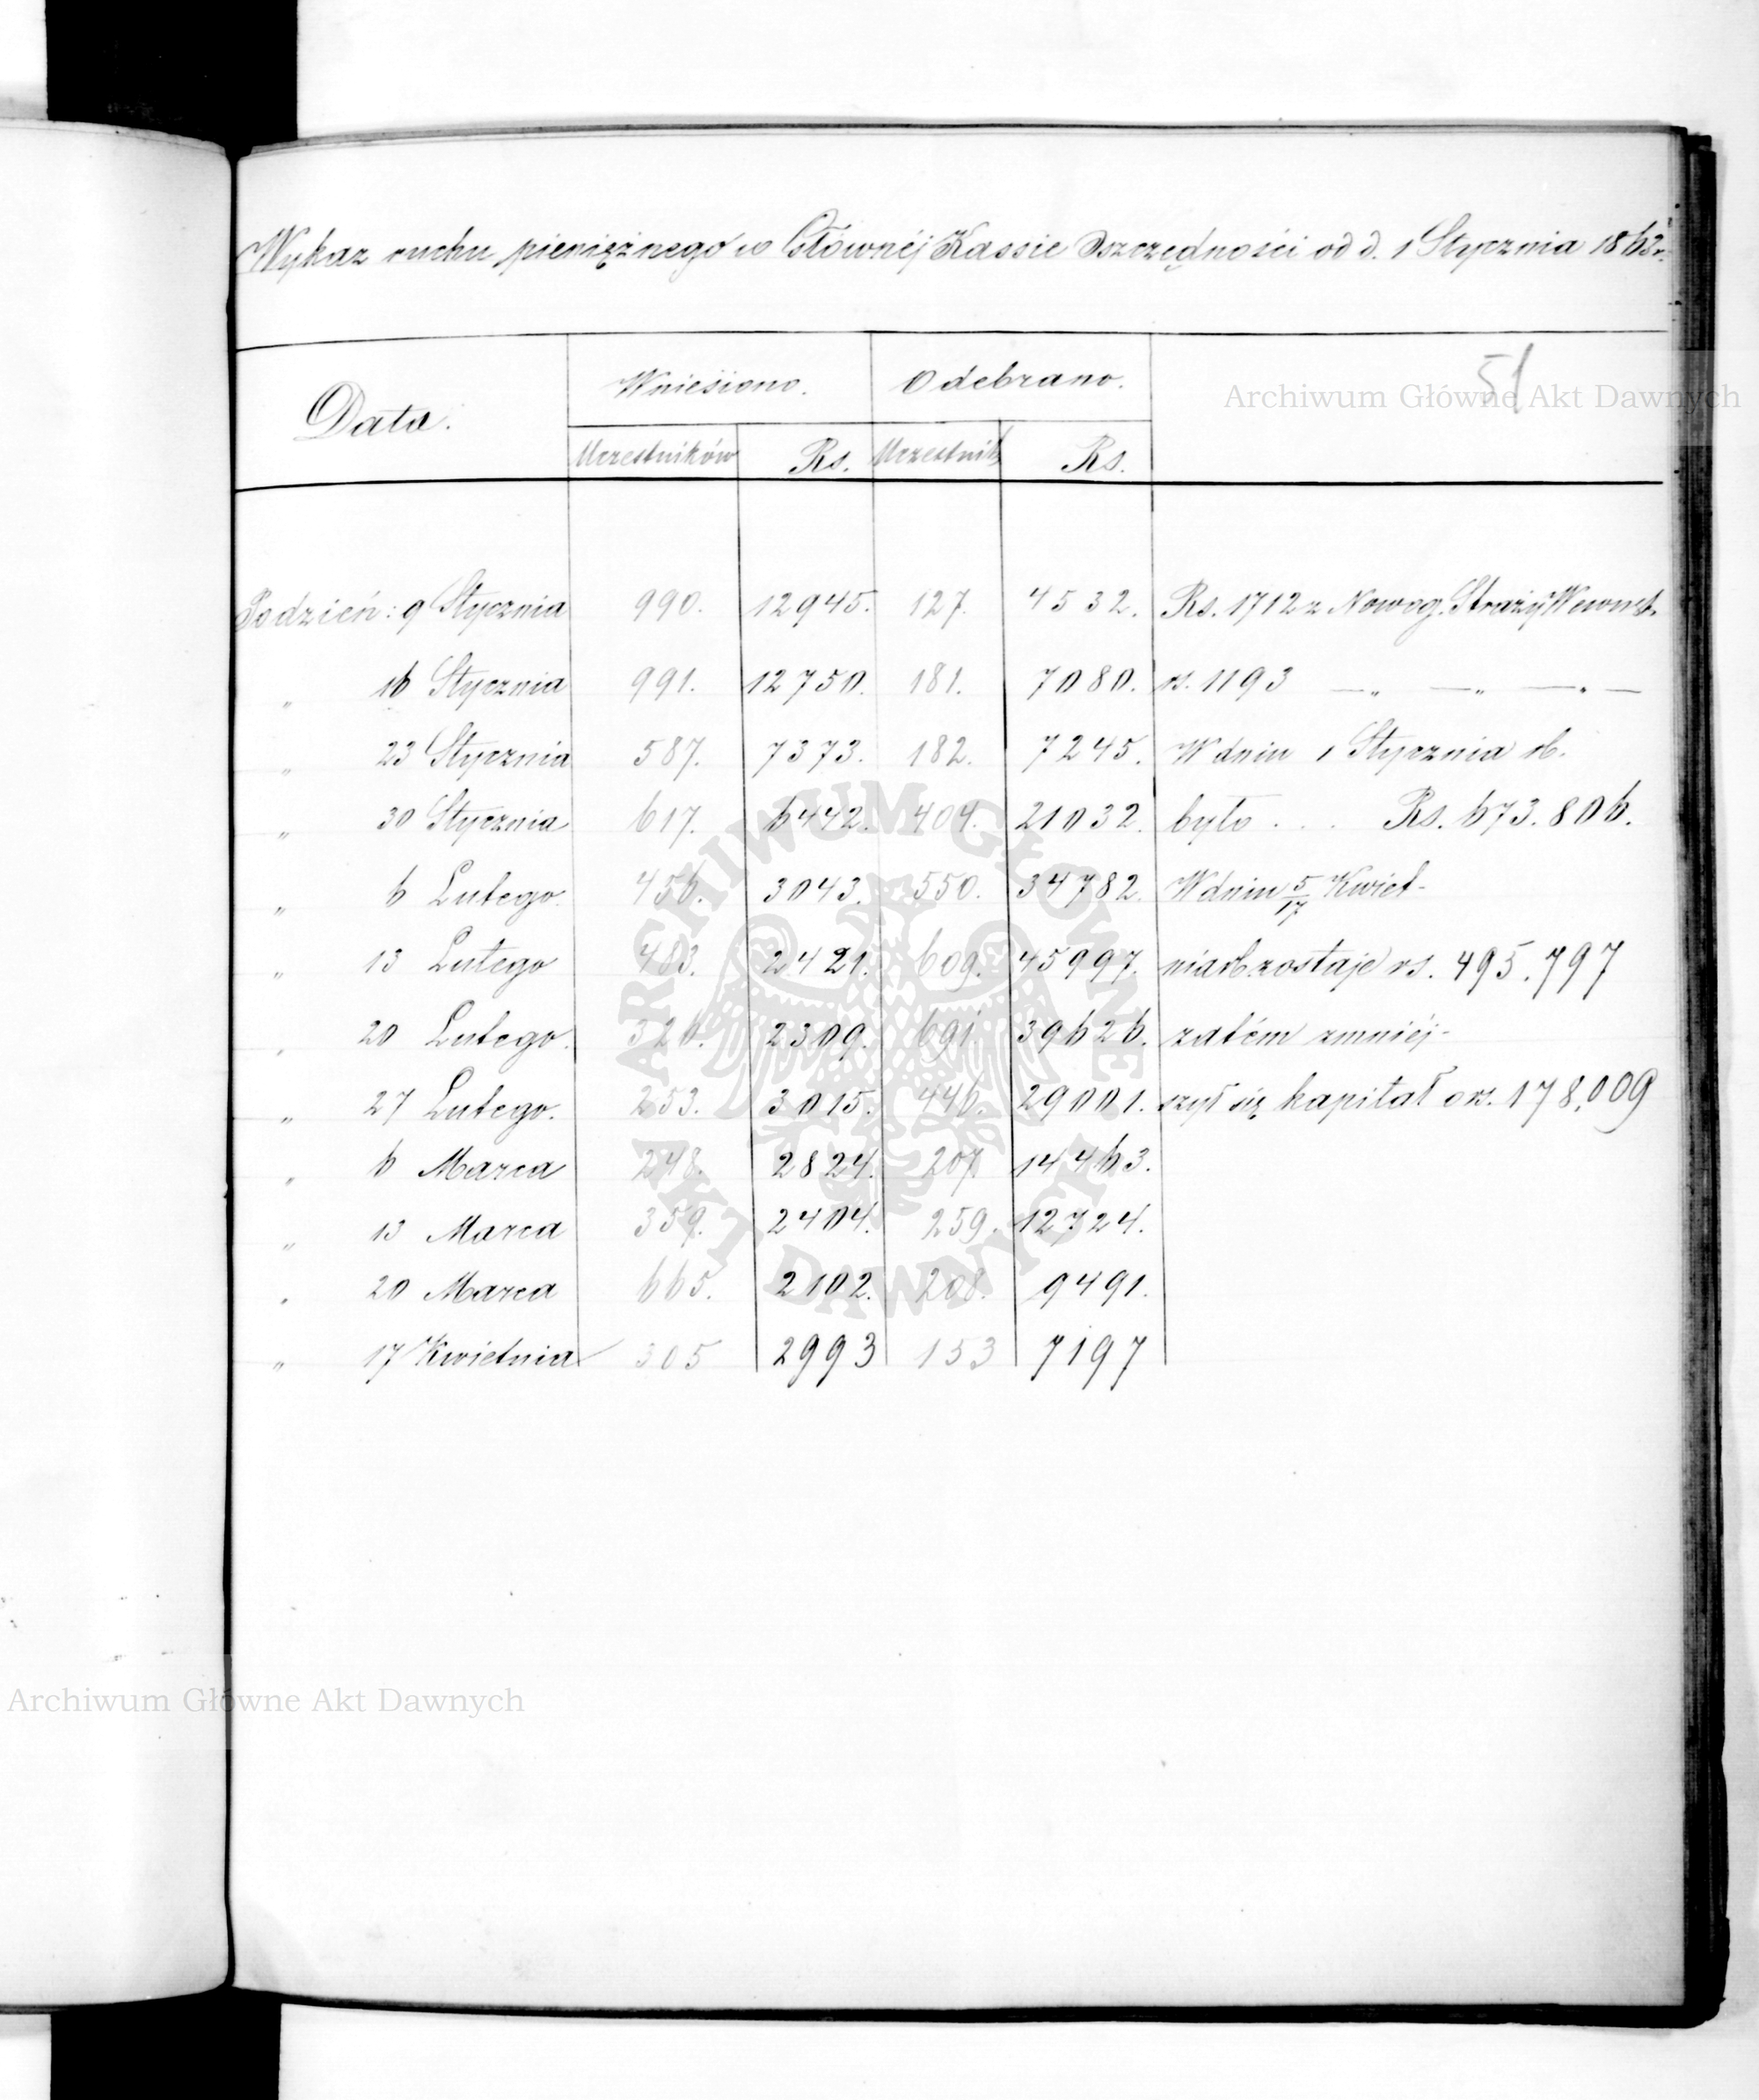 Wykaz ruchu pieniężnego w Głównéj Kassie Oszczędności od d. 1 Stycznia 1863 r.
51
Archiwum Główne Akt Dawnych
Data. Wniesiono. Odebrano.
Uczestników Rs. Uczestnik Rs.
Podzień: 9 Stycznia 990. 12945. 127. 4532. Rs. 1712 z Nowog. Straży Wewnet.
„ 16 Stycznia 991. 12750. 181. 7080. rs. 1193 —„ —„ —„—
„ 23 Stycznia 587. 7373. 182. 7245. W dniu 1 Stycznia rb.
„ 30 Stycznia 617. 6442. 404. 21032. było . . . Rs. 673.806.
„ 6 Lutego 456. 3043. 550. 34782. W dniu 5/17 Kwiet-
„ 13 Lutego 483. 2421. 609. 45997. nia rb. zostaje rs. 495.797
„ 20 Lutego. 326. 2309. 691. 39626. zatém zmniéj-
„ 27 Lutego. 253. 3015. 446. 29001. szył się kapitał o rs. 178,009
„ 6 Marca 248. 2824. 207. 14463.
„ 13 Marca 359. 2404. 259. 12724.
„ 20 Marca 665. 2102. 208. 9491.
„ 17 Kwietnia 305 2993 153 7197
ARCHIWUM GŁÓWNE
AKT DAWNYCH
Archiwum Główne Akt Dawnych